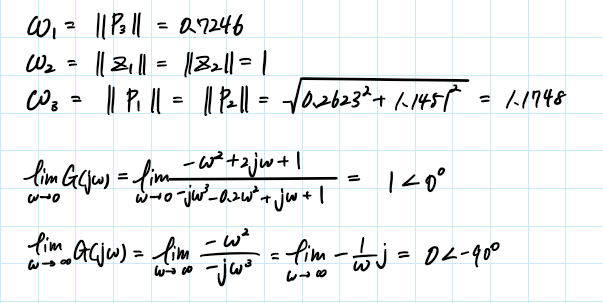 ω₁ = ||P₃|| = 0.7246
ω₂ = ||z₁|| = ||z₂|| = 1
ω₃ = ||P₁|| = ||P₂|| = √(0.2623² + 1.1451²) = 1.1748
lim_{ω→0} G(jω) = lim_{ω→0} (-ω² + 2jω + 1)/(-jω³ - 0.2ω² + jω + 1) = 1∠0°
lim_{ω→∞} G(jω) = lim_{ω→∞} (-ω²)/(-jω³) = lim_{ω→∞} -(1/ω)j = 0∠-90°